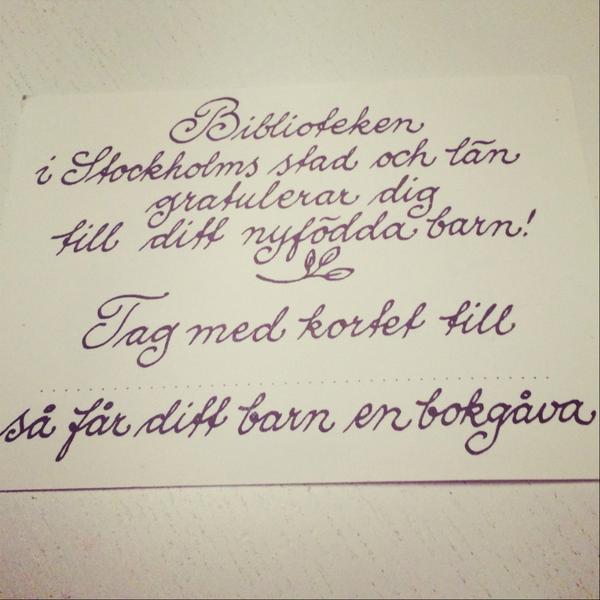 Biblioteken
i Stockholms stad och län
gratulerar dig
till ditt nyfödda barn!
Tag med kortet till
så får ditt barn en bokgåva